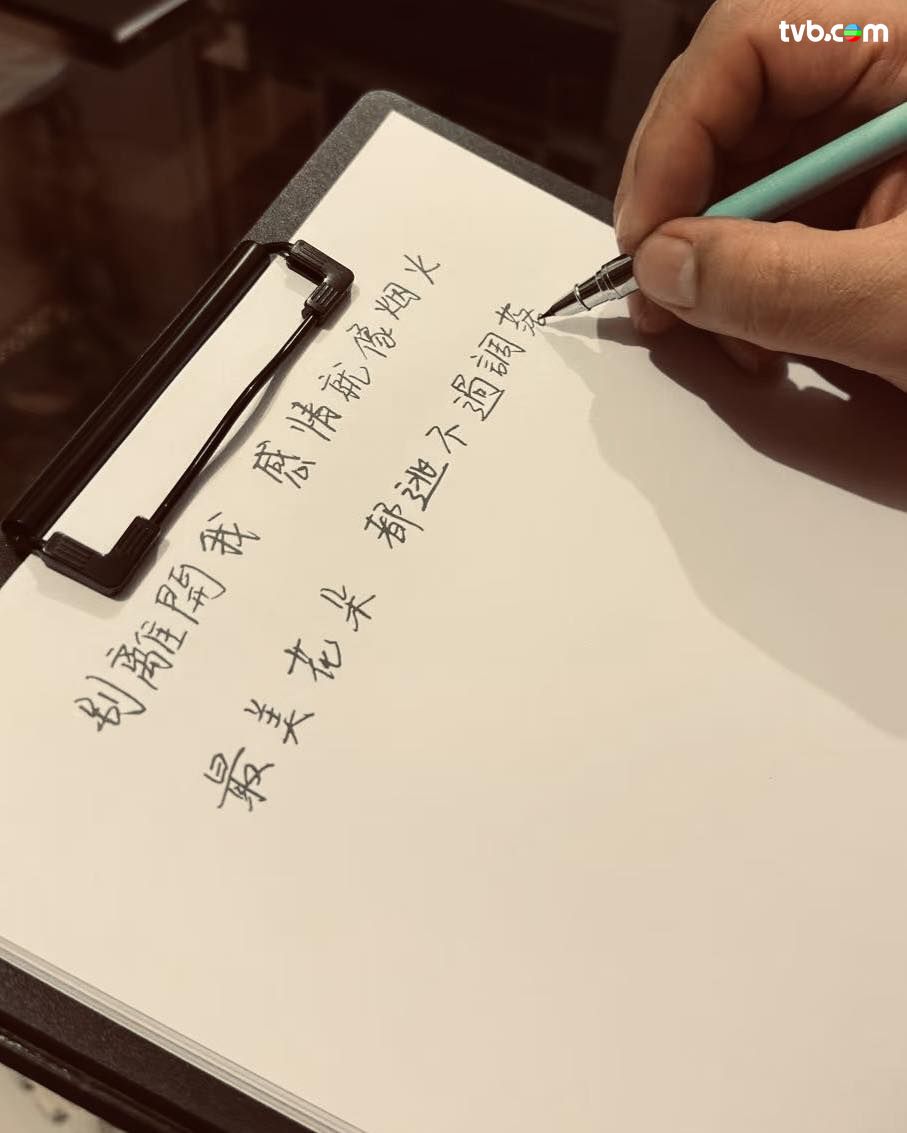 tvb.com
別離開我 感情就像烟火
最美花朵 都逃不過調